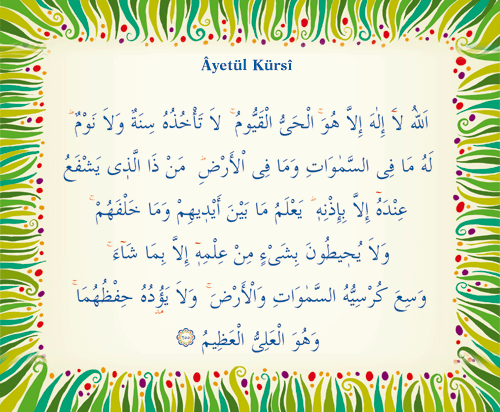 Âyetül Kürsî
اَللّٰهُ لَٓا اِلٰهَ اِلَّا هُوَۚ اَلْحَيُّ الْقَيُّومُۚ لَا تَأْخُذُهُ سِنَةٌ وَلَا نَوْمٌۜ
لَهُ مَا فِي السَّمٰوَاتِ وَمَا فِي الْاَرْضِۜ مَنْ ذَا الَّذ۪ي يَشْفَعُ
عِنْدَهُٓ اِلَّا بِاِذْنِه۪ۜ يَعْلَمُ مَا بَيْنَ اَيْد۪يهِمْ وَمَا خَلْفَهُمْۚ
وَلَا يُح۪يطُونَ بِشَيْءٍ مِنْ عِلْمِه۪ٓ اِلَّا بِمَا شَٓاءَۚ
وَسِعَ كُرْسِيُّهُ السَّمٰوَاتِ وَالْاَرْضَۚ وَلَا يَؤُ۫دُهُ حِفْظُهُمَاۚ
وَهُوَ الْعَلِيُّ الْعَظ۪يمُ ٢٥٥